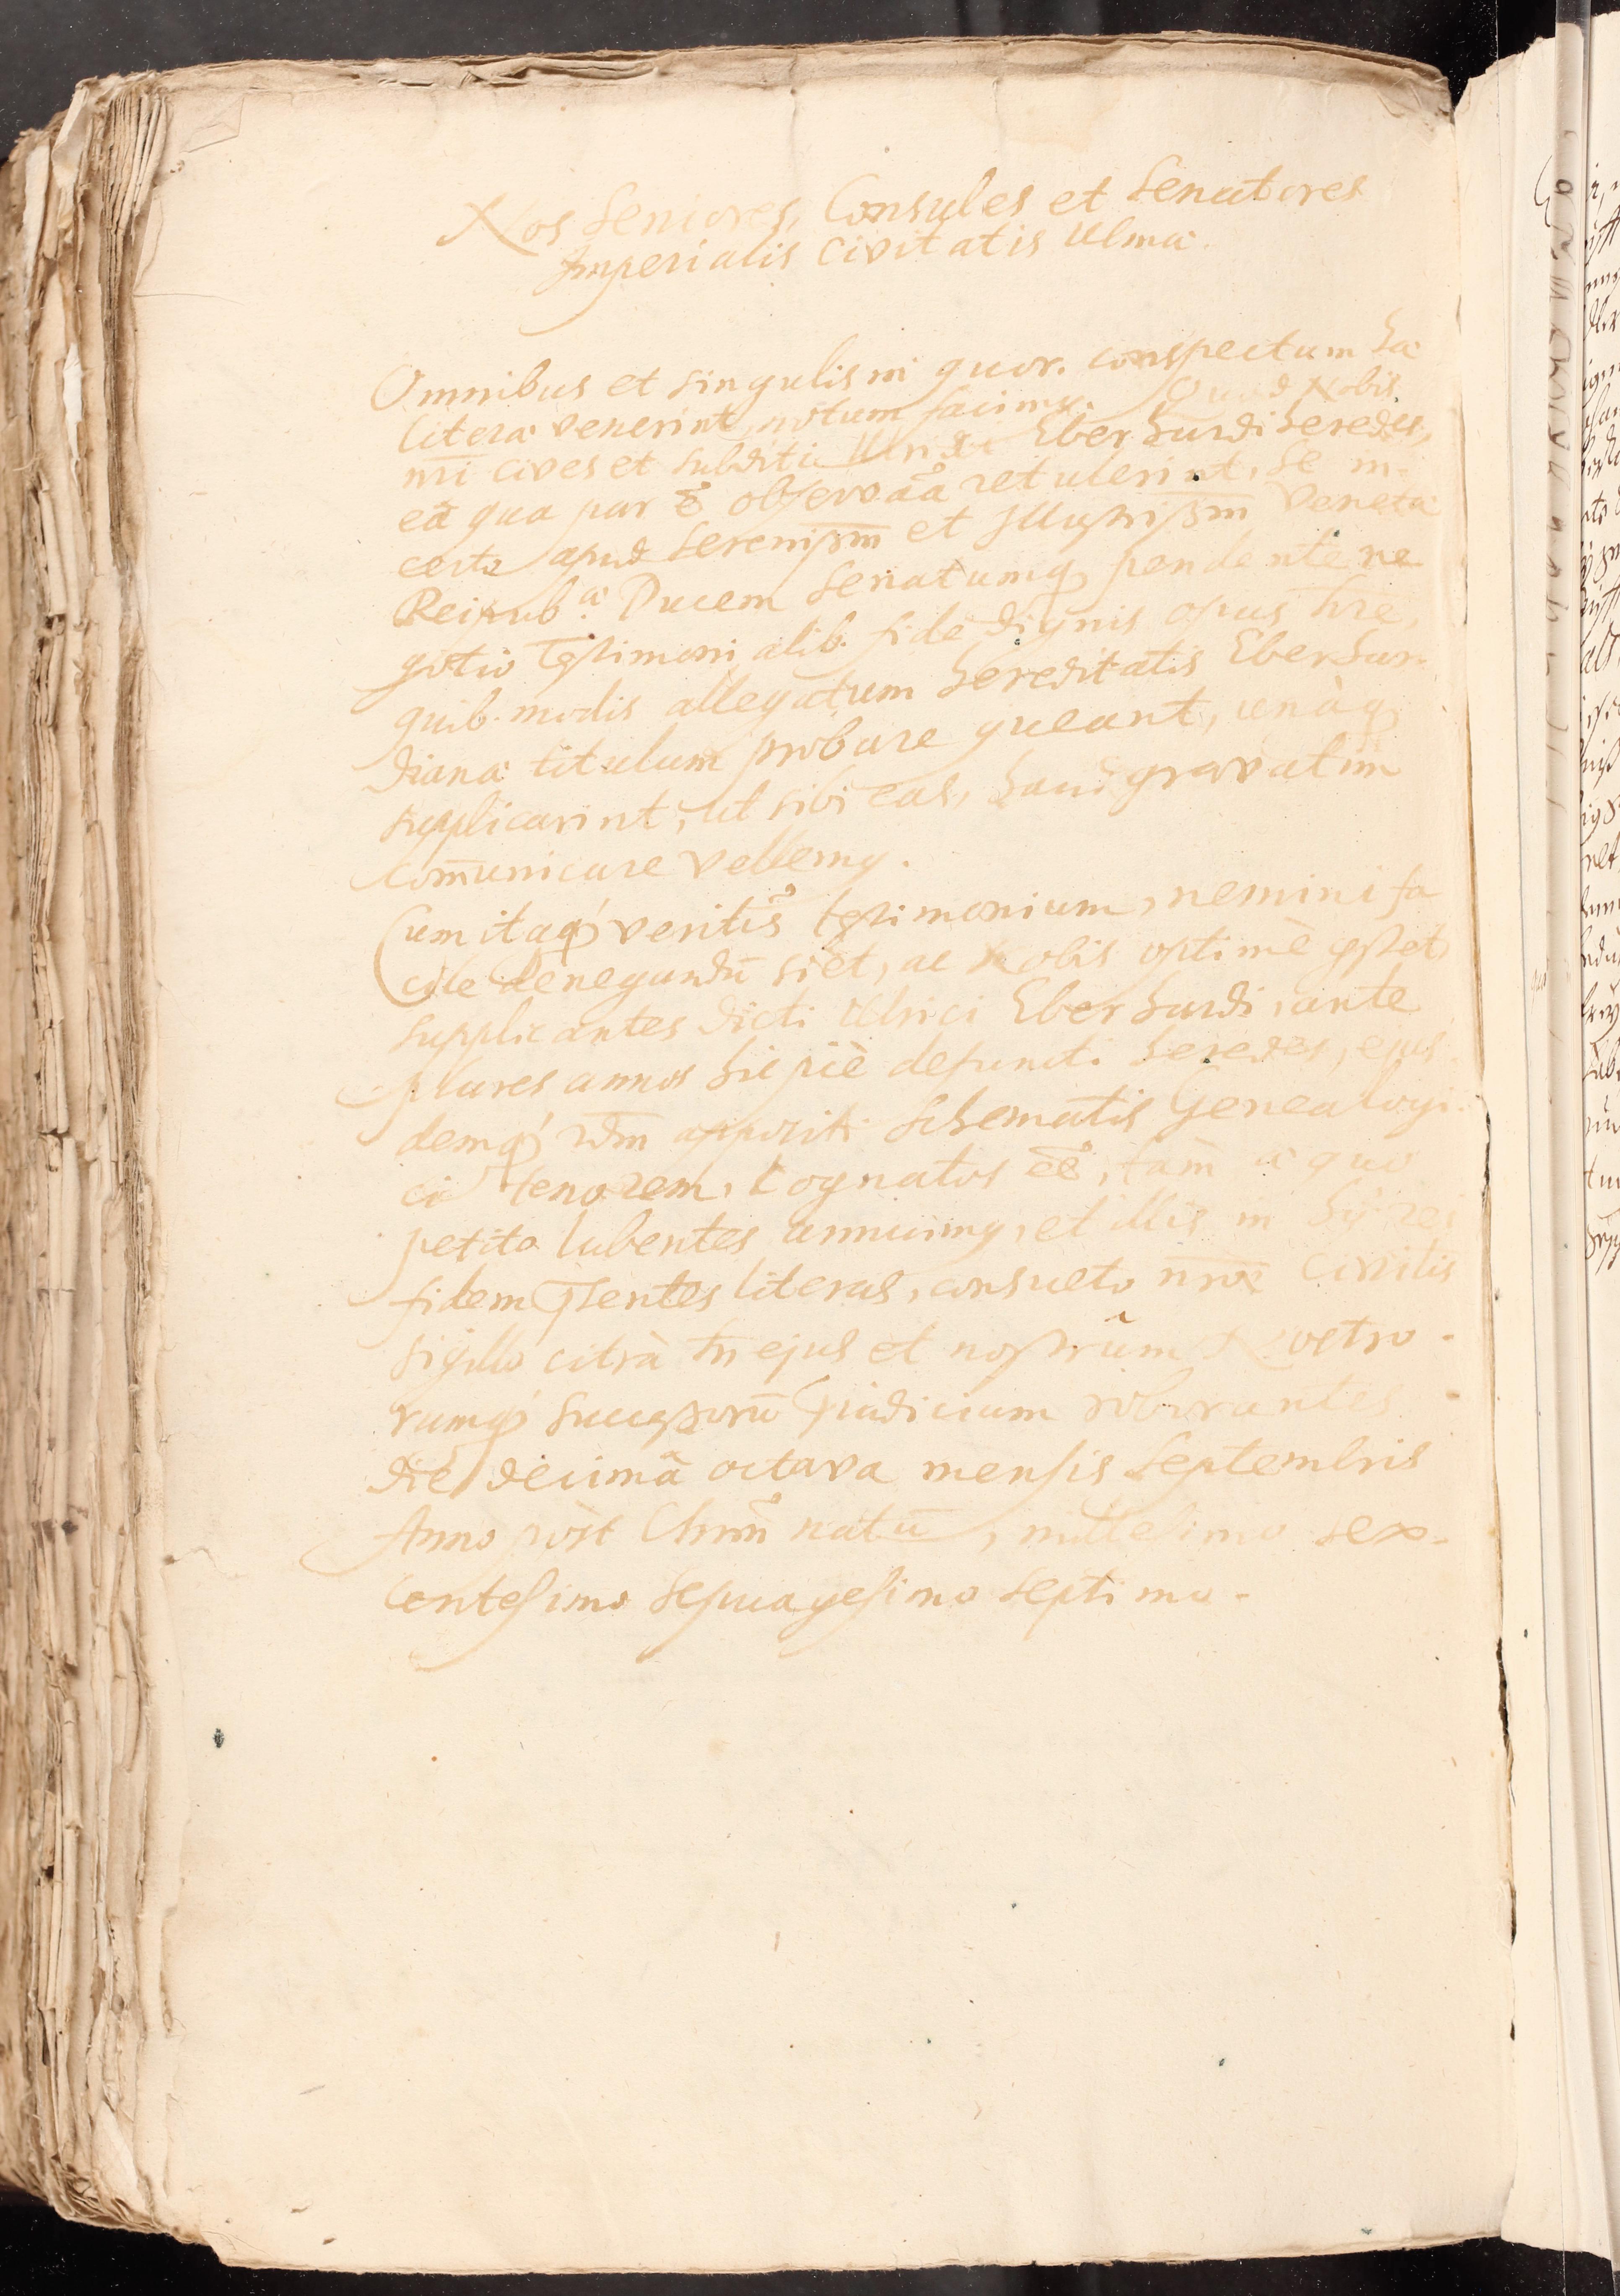 Nos Seniores, Consules et Senatores
Imperialis Civitatis Ulmæ.
Omnibus et singulis in quor. conspectum hæ
literæ venerint, notum facimg. Quod Nobis
nr̃i cives et subditi Ulrici Eberhardi heredes,
eâ qua par ẽ observãa retulerint, se in
certo apud Serenissm̃ et Illustrissm̃ Venetæ
Reipub.æ Ducem Senatumq pendente ne
gotio Testimonialib. fide dignis opus hr̃e,
quib. modis allegatum hereditatis Eberhar-
dianæ titulum probare queant, unàq
supplicarint, ut sibi eas, haud gravatim
com̃unicare vellemg.
Cum itaq veritis testimonium, nemini fa
cile denegandū siet, ac Nobis optimè gstet,
supplicantes dicti Ulrici Eberhardi, ante
plures annos hic piè defuncti heredes, ejus
demq appositi Schematis Genealogi
ci tenorem, cognatos eẽ, tam æquo
petito lubentes annuimg, et illis in hujg rei
fidem pñtentes literas, consueto nr̃æ Civitis
sigillo citrà tñ ejus et nostrûm Nostro-
rumq successorū pjudicium roborantes
die decimâ octava mensis Septembris
Anno pòst Chrm̃ natū, millesimo sex-
centesimo sepuagesimo septimo.